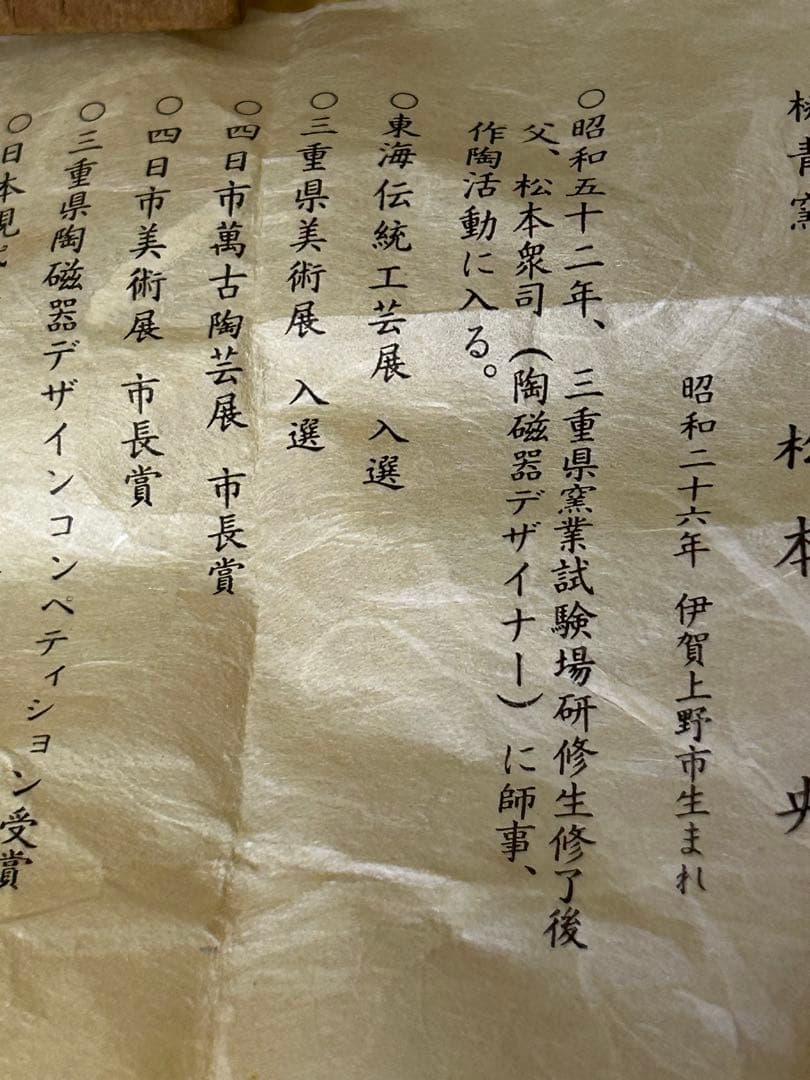 青窯
松本 央
昭和二十六年 伊賀上野市生まれ
○昭和五十二年、三重県窯業試験場研修生修了後
父、松本衆司（陶磁器デザイナー）に師事、
作陶活動に入る。
○東海伝統工芸展 入選
○三重県美術展 入選
○四日市萬古陶芸展 市長賞
○四日市美術展 市長賞
○三重県陶磁器デザインコンペティション受賞
○日本現代